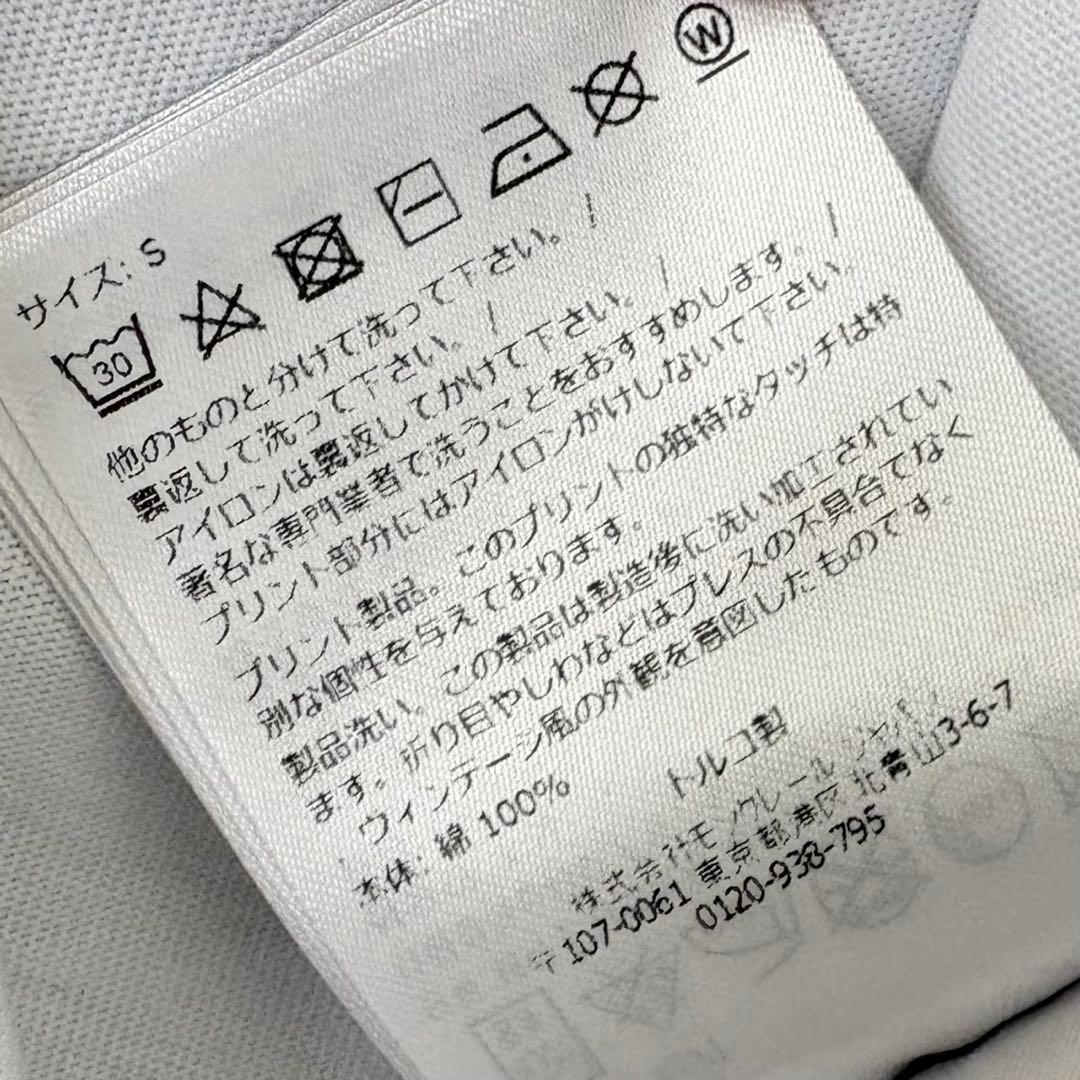 サイズ: S
30
W
他のものと分けて洗って下さい。 /
裏返して洗って下さい。 /
アイロンは裏返してかけて下さい。 /
著名な専門業者で洗うことをおすすめします。 /
プリント部分にはアイロンがけしないで下さい。
プリント製品。このプリントの独特なタッチは特
別な個性を与えております。
製品洗い。この製品は製造後に洗い加工されてい
ます。折り目やしわなどはプレスの不具合でなく
ヴィンテージ風の外観を意図したものです。
本体: 綿 100%
トルコ製
株式会社モンクレール ジャパン
〒107-0061 東京都港区 北青山3-6-7
0120-938-795